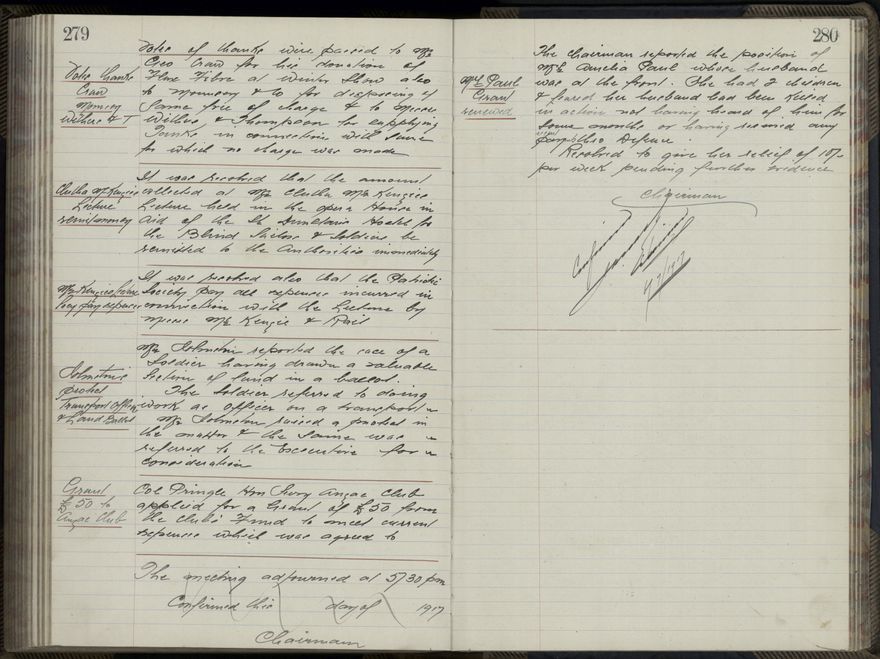 279
Votes of thanks were passed to Mr
Geo Craw for his donation of
Flax Fibre at Winter Show also
to Momsey & Co for disposing of
same free of charge & to Messrs
Withers & Thompson for supplying
Tanks in connection with same
for which no charge was made
Votes thanks
Craw
Momsey
Withers & T
It was resolved that the amount
collected at Mr Clutha McKenzie
Lecture held in the Opera House in
aid of the St Dunstans Hostel for
the Blind Sailors & Soldiers be
remitted to the Authorities immediately
Clutha McKenzie
Lecture
remit money
It was resolved also that the Patriotic
Society pay all expenses incurred in
connection with the Lecture by
Messrs McKenzie & Rait
McKenzies Lecture
Socy pay expenses
Mr Johnston reported the case of a
Soldier having drawn a valuable
Section of land in a ballot.
The Soldier referred to doing
work as officer on a transport
Mr Johnston raised a protest in
the matter & the same was
referred to the Executive for
consideration
Johnstons
protest
Transport Officer
& Land Ballot
Col Pringle Hon Secy Anzac Club
applied for a Grant of £50 from
the Clubs Fund to meet current
expenses which was agreed to
Grant
£50 to
Anzac Club
The meeting adjourned at 5/30 pm
Confirmed this day of 1917
Chairman
280
The Chairman reported the position of
Mrs Amelia Paul whose husband
was at the front. She had 2 children
& feared her husband had been killed
in action not having heard of him for
some months or having received any
from the Defence.
Resolved to give her relief of 10/-
per week pending further evidence
Mrs Paul
Grant
renewed
Chairman
Confirmed
4/7/1917